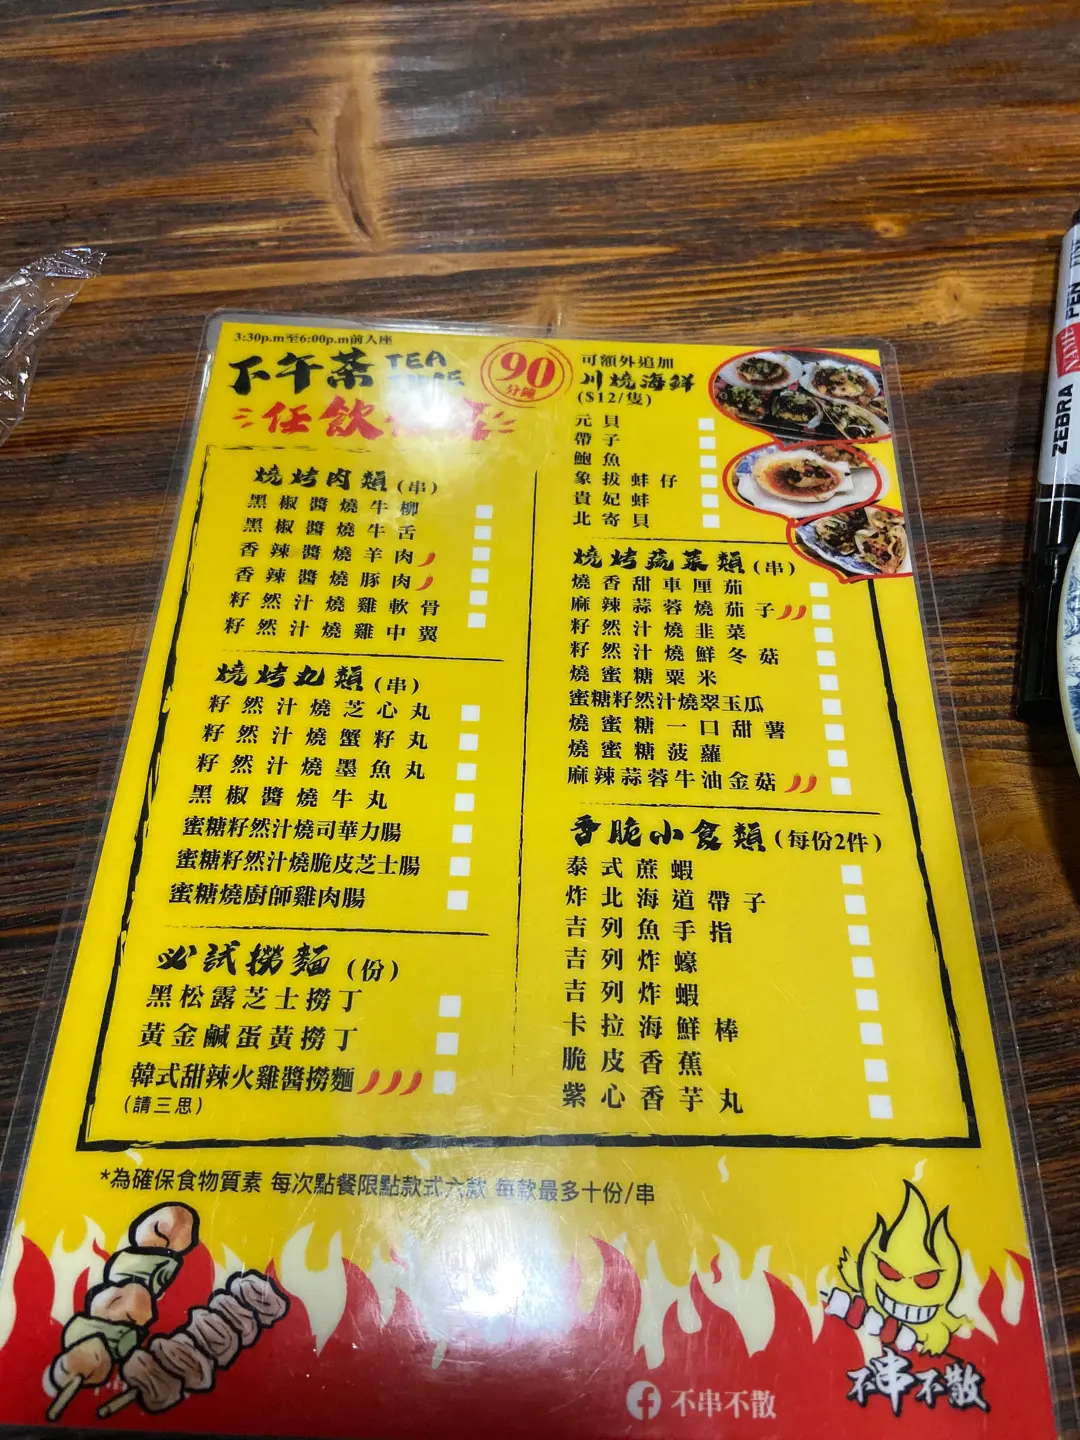 3:30p.m至6:00p.m前入座
下午茶 TEA TIME
任飲
90
分鐘
燒烤肉類(串)
黑椒醬燒牛柳
黑椒醬燒牛舌
香辣醬燒羊肉
香辣醬燒豚肉
籽然汁燒雞軟骨
籽然汁燒雞中翼
燒烤丸類(串)
籽然汁燒芝心丸
籽然汁燒蟹籽丸
籽然汁燒墨魚丸
黑椒醬燒牛丸
蜜糖籽然汁燒司華力腸
蜜糖籽然汁燒脆皮芝士腸
蜜糖燒廚師雞肉腸
必試撈麵(份)
黑松露芝士撈丁
黃金鹹蛋黃撈丁
韓式甜辣火雞醬撈麵
(請三思)
可額外追加
川燒海鮮
($12/隻)
元貝
帶子
鮑魚
象拔蚌仔
貴妃蚌
北寄貝
燒烤蔬菜類(串)
燒香甜車厘茄
麻辣蒜蓉燒茄子
籽然汁燒韭菜
籽然汁燒鮮冬菇
燒蜜糖粟米
蜜糖籽然汁燒翠玉瓜
燒蜜糖一口甜薯
燒蜜糖菠蘿
麻辣蒜蓉牛油金菇
香脆小食類(每份2件)
泰式蔗蝦
炸北海道帶子
吉列魚手指
吉列炸蠔
吉列炸蝦
卡拉海鮮棒
脆皮香蕉
紫心香芋丸
*為確保食物質素 每次點餐限點款式六款 每款最多十份/串
不串不散
不串不散
ZEBRA
NAME PEN